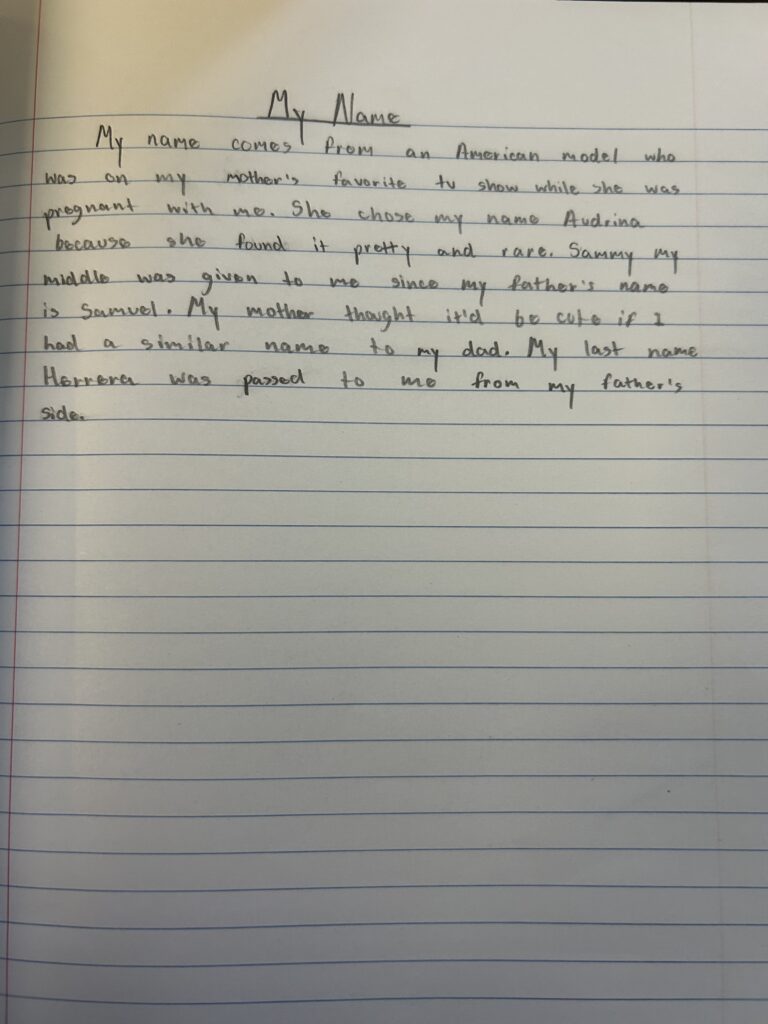 My Name
My name comes from an American model who
was on my mother's favorite tv show while she was
pregnant with me. She chose my name Audrina
because she found it pretty and rare. Sammy my
middle was given to me since my father's name
is Samuel. My mother thought it'd be cute if I
had a similar name to my dad. My last name
Herrera was passed to me from my father's
side.